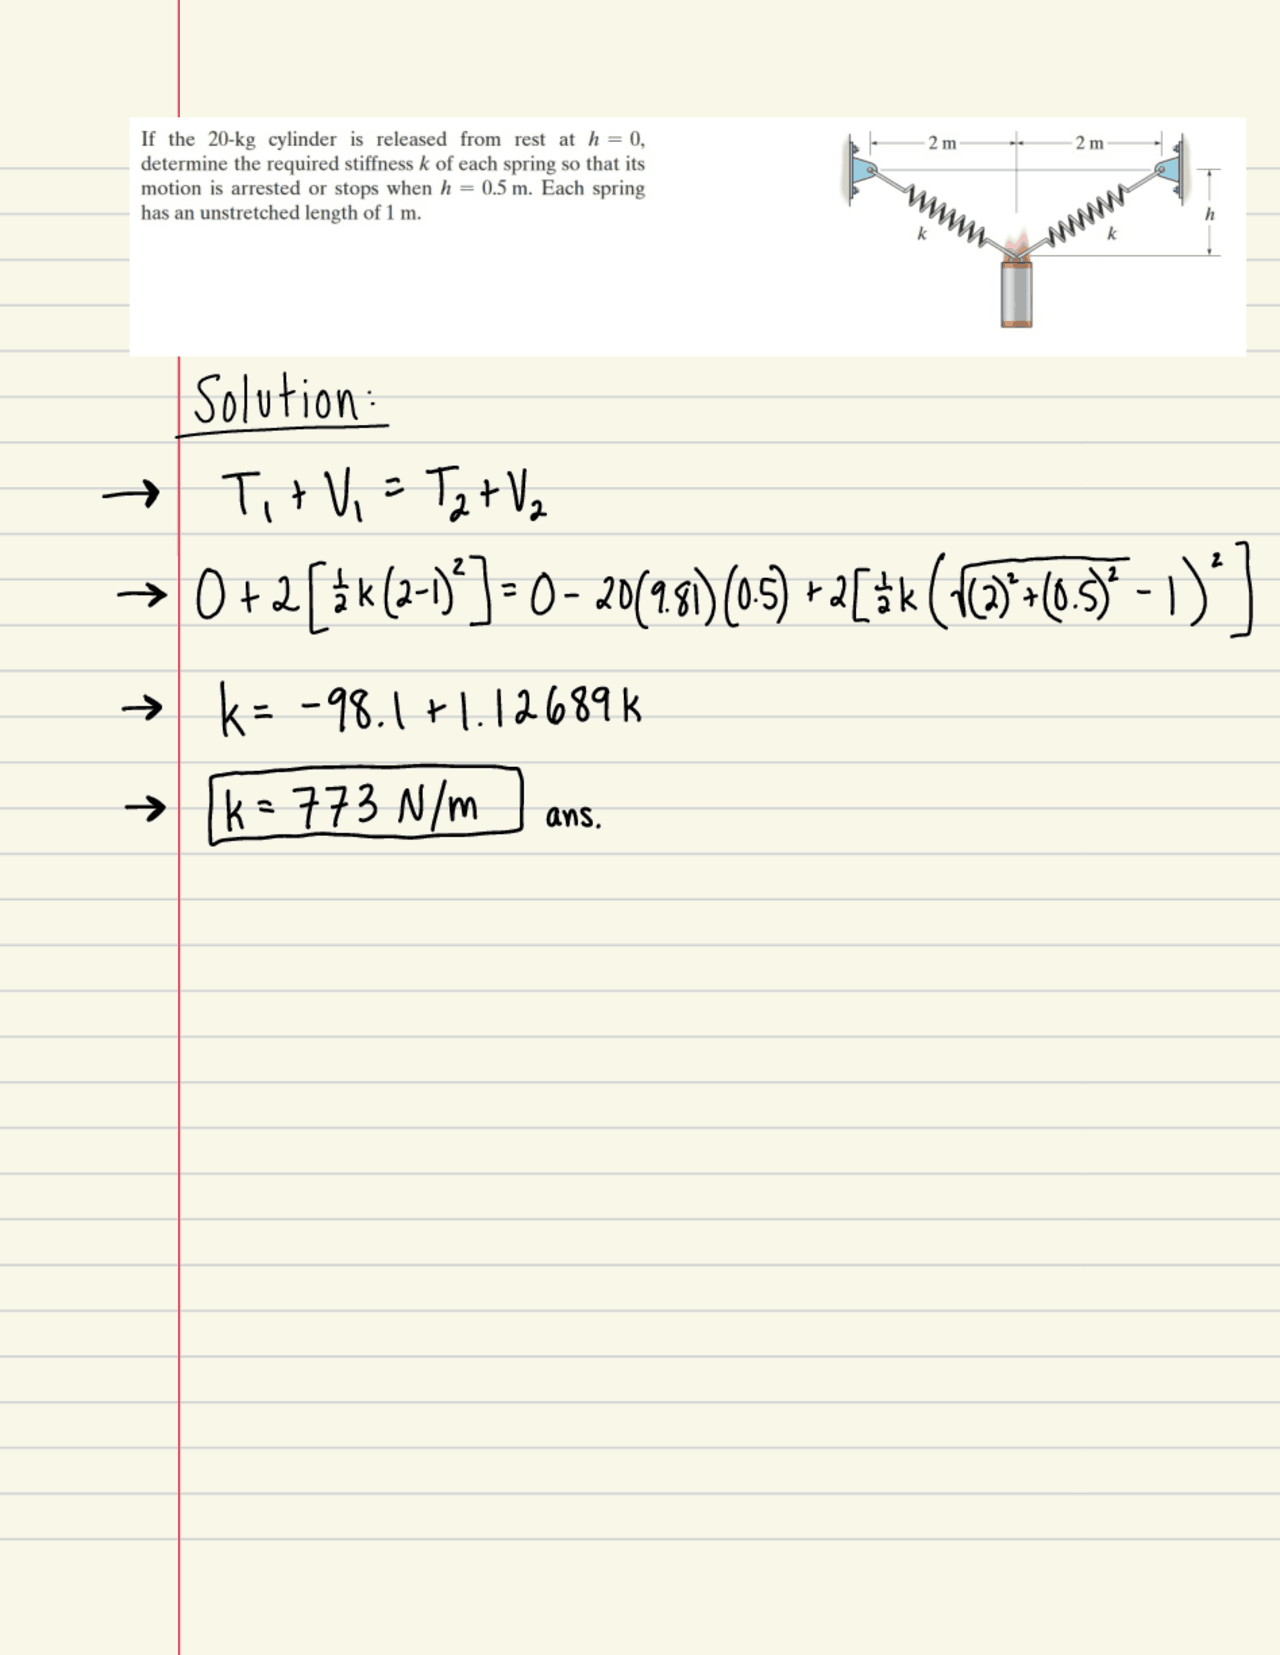 If the 20-kg cylinder is released from rest at h = 0,
determine the required stiffness k of each spring so that its
motion is arrested or stops when h = 0.5 m. Each spring
has an unstretched length of 1 m.
2 m 2 m
h
k k
Solution:
→ T₁ + V₁ = T₂ + V₂
→ 0 + 2[½k(2-1)²] = 0 - 20(9.81)(0.5) + 2[½k(√((2)²+(0.5)²) - 1)²]
→ k = -98.1 + 1.12689k
→ k = 773 N/m ans.